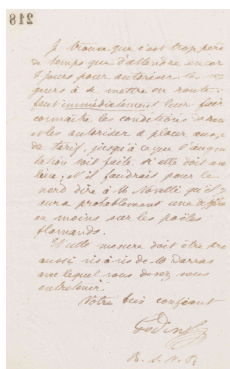 Je trouve que c'est trop perdre
de temps que d'attendre encore
8 jours pour autoriser les
à se mettre en route.
faut immédiatement leur faire
connaître les conditions
et les autoriser à placer aux
du tarif, jusqu'à ce que l'augmen
tation soit faite si elle doit avoir
lieu, et il faudrait pour le
nord dire à M. qu'il y
aura probablement une
en moins sur les poëles
flamands.
mesure doit être
aussi vis à vis de M. Darras
avec lequel vous devez vous
entretenir.
Votre bien confiant
Godin